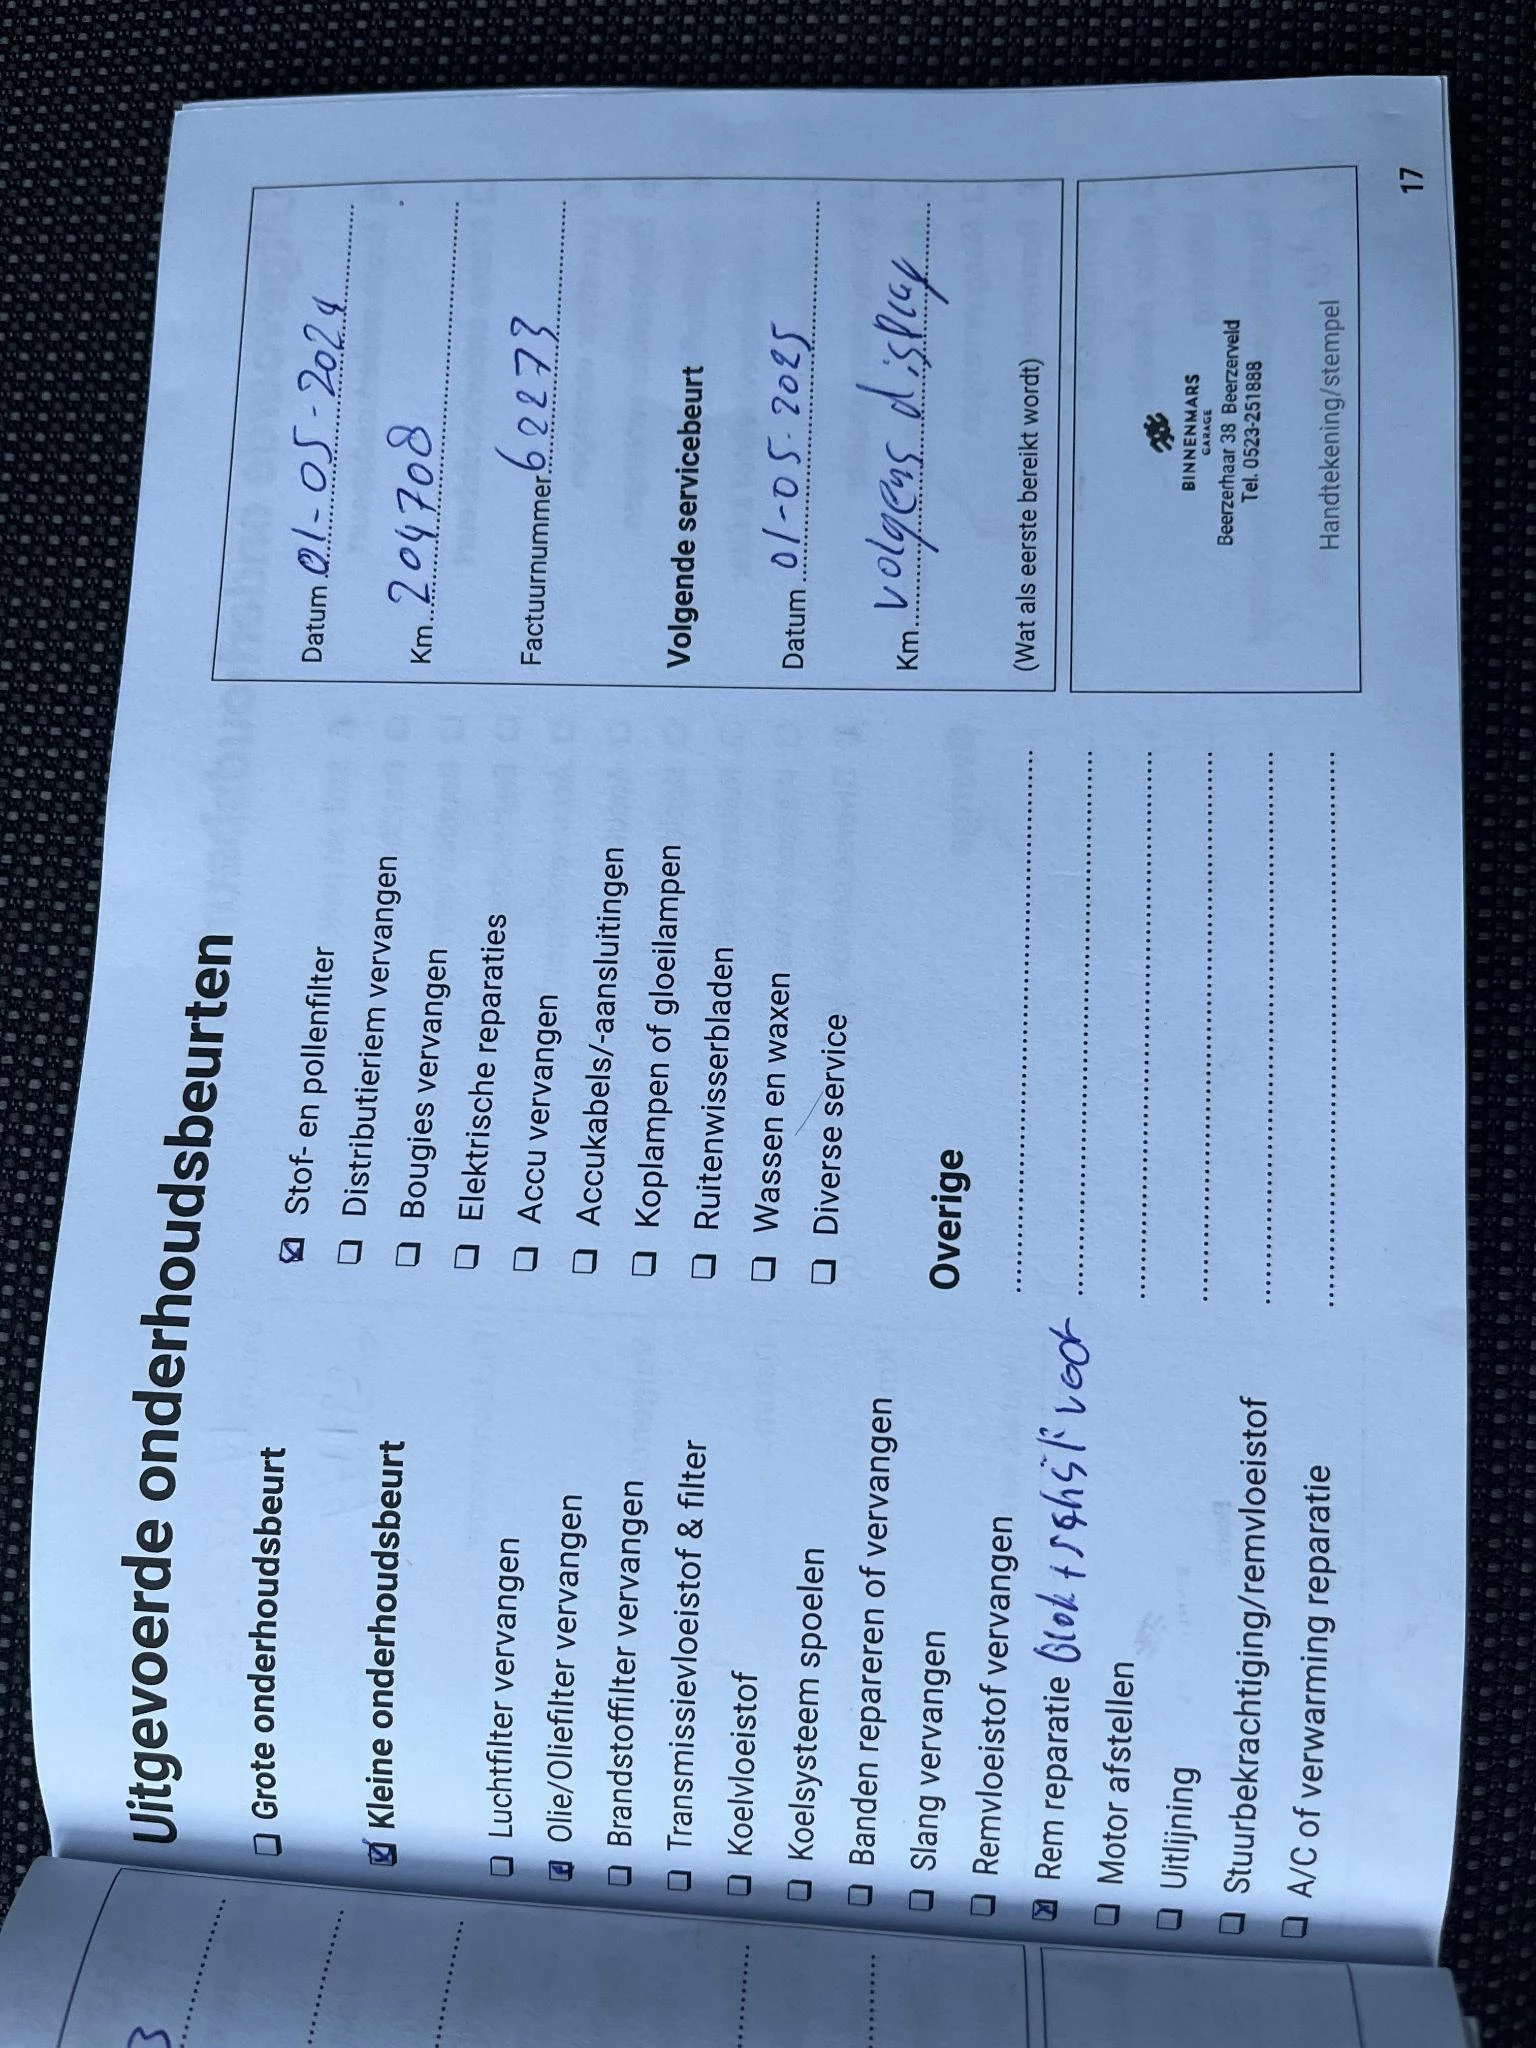 Uitgevoerde onderhoudsbeurten
Grote onderhoudsbeurt
Kleine onderhoudsbeurt
Luchtfilter vervangen
Olie/Oliefilter vervangen
Brandstoffilter vervangen
Transmissievloeistof & filter
Koelvloeistof
Koelsysteem spoelen
Banden repareren of vervangen
Slang vervangen
Remvloeistof vervangen
Rem reparatie Blok + schijf voor
Motor afstellen
Uitlijning
Stuurbekrachtiging/remvloeistof
A/C of verwarming reparatie
Stof- en pollenfilter
Distributieriem vervangen
Bougies vervangen
Elektrische reparaties
Accu vervangen
Accukabels/-aansluitingen
Koplampen of gloeilampen
Ruitenwisserbladen
Wassen en waxen
Diverse service
Overige
Datum 01-05-2024
Km 204708
Factuurnummer 622273
Volgende servicebeurt
Datum 01-05-2025
Km volgens display
(Wat als eerste bereikt wordt)
BINNENMARS
GARAGE
Beerzerhaar 38 Beerzerveld
Tel. 0523-251888
Handtekening/stempel
17
3